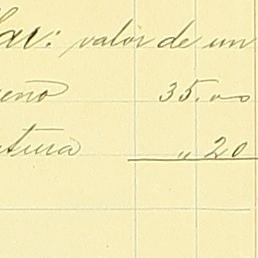 lar: valor de un
eno 35.00
atura " 20